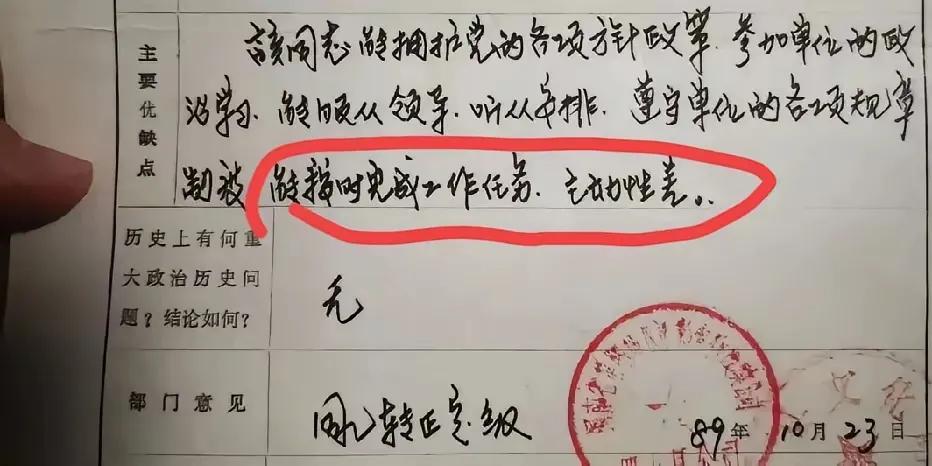 主要优缺点
该同志能拥护党的各项方针政策.参加单位的政
治学习.能服从领导.听从安排.遵守单位的各项规章
制度 能按时完成工作任务.主动性差。
历史上有何重
大政治历史问
题?结论如何?
无
部门意见
同意转正定级
89年10月23日